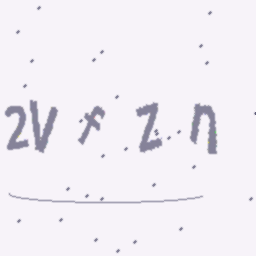 2V f Z n